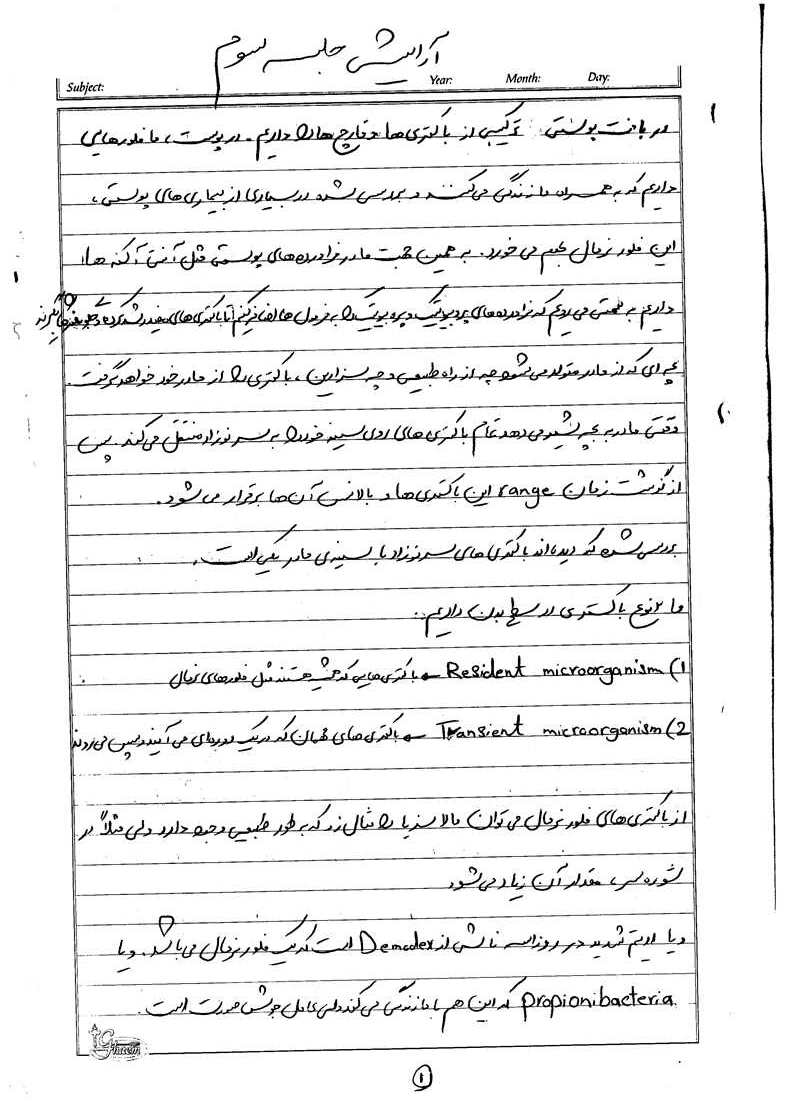 آرایش جلسه سوم
Subject: Year: Month: Day:
در بافت پوستی ترکیبی از باکتری ها و قارچ ها را داریم. در پوست، ما فلورهایی
داریم که به همراه ما زندگی می کنند و بررسی شده در بسیاری از بیماری های پوستی،
این فلور نرمال بهم می خورد. به همین جهت ما در فراورده های پوستی مثل آنتی آکنه ها،
داریم به سمتی می رویم که فراورده های پروبیوتیک و پره بیوتیک را به فرمول ها اضافه کنیم تا باکتری های مفید رشد کرده و جلو بقیه را بگیرند
بچه ای که از مادر متولد می شود چه از راه طبیعی و چه سزارین، باکتری را از مادر خود خواهد گرفت.
وقتی مادر به بچه شیر می دهد تمام باکتری های روی سینه خود را به سر نوزاد منتقل می کند. پس
از گذشت زمان range این باکتری ها و بالانس آن ها برقرار می شود.
بررسی شده که دیده اند باکتری های سر نوزاد با سینه ی مادر یکی است.
ما ۲ نوع باکتری در سطح بدن داریم:
1) Resident microorganism → باکتری هایی که همیشه هستند مثل فلورهای نرمال
2) Transient microorganism → باکتری های مهمان که در یک دوره ای می آیند و سپس می روند
از باکتری های فلور نرمال می توان مالاسزیا را مثال زد که به طور طبیعی وجود دارد ولی مثلاً در
شوره سر، مقدار آن زیاد می شود
و یا اریتم شدید در روزاسه ناشی از Demodex است که یک فلور نرمال می باشد. و یا
propionibacteria که این هم با ما زندگی می کند ولی عامل جوش صورت است.
Ghaem
۱